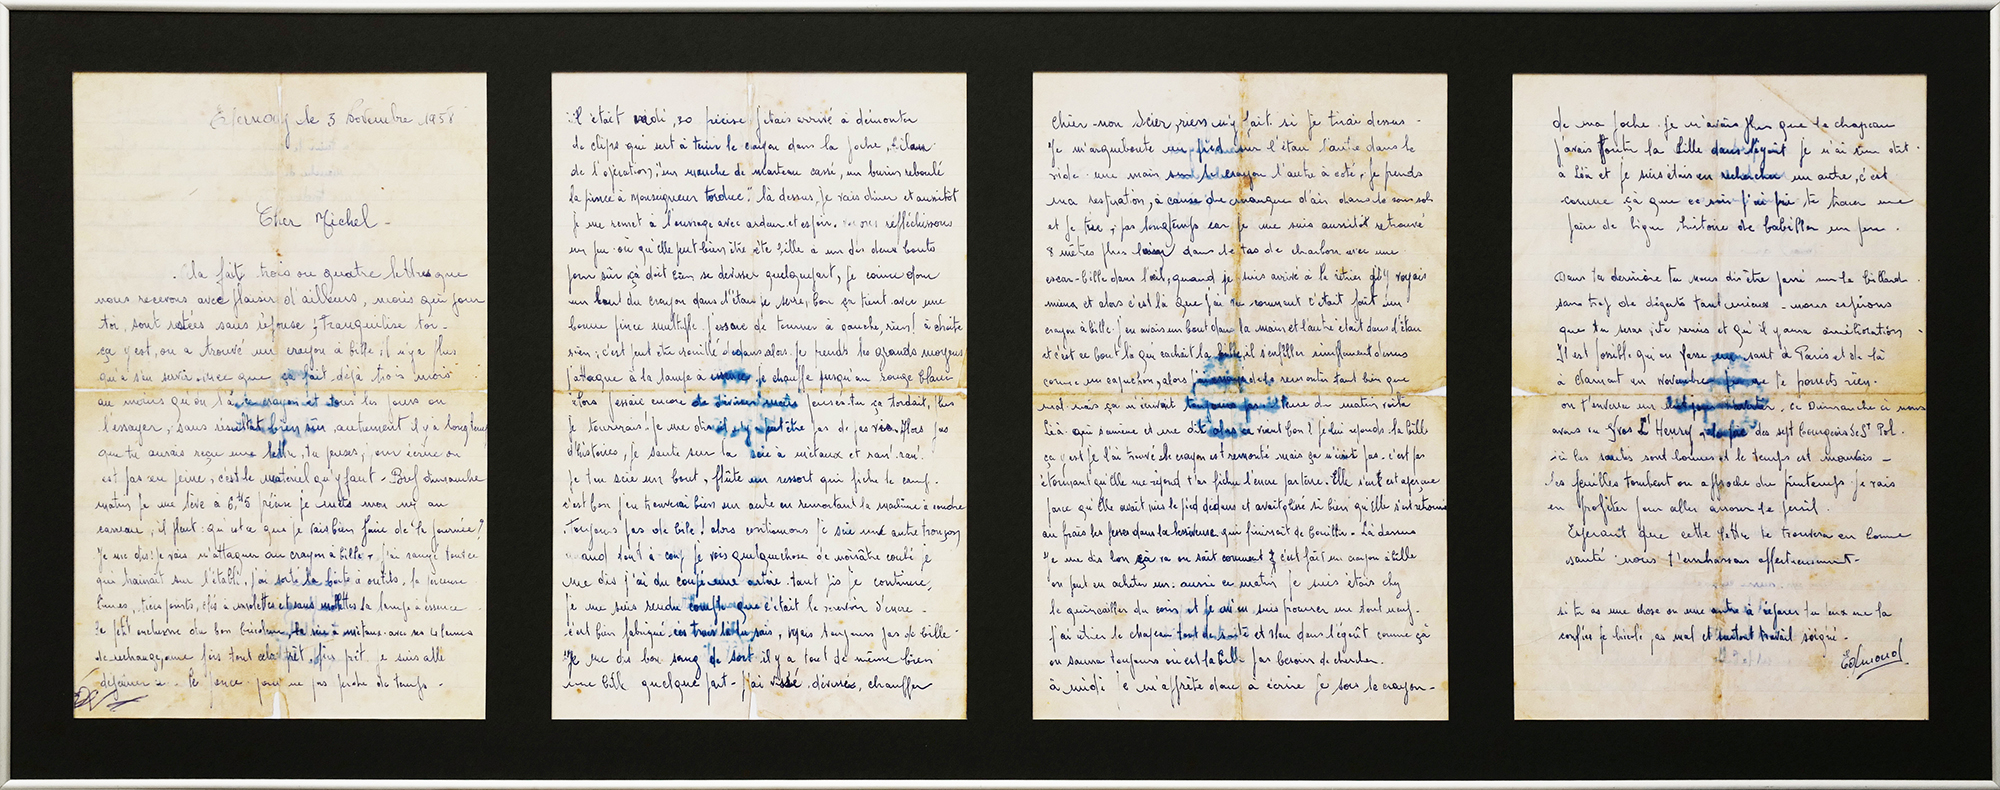 Epernay le 3 Novembre 1958
Cher Michel -
Cela fait trois ou quatre lettres que
nous recevons avec plaisir d'ailleurs, mais qui pour
toi, sont restées sans réponse; Tranquilise toi-
ça y est, on a trouvé un crayon à bille; il n'y a plus
qu'à s'en servir. avec que ça fait déjà trois mois
au moins qu'on l'a ce crayon et tous les jours on
l'essayer, sans résultat bien sûr, autrement il y a longtemps
que tu aurais reçu une lettre, tu penses, pour écrire on
est pas en peine, c'est le matériel qu'y faut - Bref dimanche
matin je me lève à 6,H5 précise je mets mon nez au
carreau, il pleut. qu'est ce que je vais bien faire de le journée?
Je me dis: Je vais m'attaquer au crayon à bille. J'ai rangé tout ce
qui trainait sur l'établi, j'ai sorti la boite à outils, la perceuse
limes, tiers points, clés à molettes et sans molettes la lampe à essence
le petit enclume du bon bricoleur, la scie à métaux avec ses lames
de rechange, une fois tout cela prêt, fin prêt, je suis allé
déjeuner pour ne pas perdre de temps -
il était midi, 30 précise j'étais arrivé à démonter
le clips qui sert à tenir le crayon dans la poche, Bilan
de l'opération; "un manche de marteau cassé, un burin reboulé
la pince à monseigneur tordue". là dessus, Je vais diner et aussitôt
je me remet à l'ouvrage avec ardeur et espoir. réfléchissons
un peu où qu'elle peut bien être cte bille à un des deux bouts
pour sûr ça doit bien se dévisser quelquepart, Je coince donc
un bout du crayon dans l'étau je serre, bon ça tient. avec une
bonne pince multiple. J'essaie de tourner à gauche, rien! à droite
rien; c'est peut être rouillé dedans alors. Je prends les grands moyens
j'attaque à la lampe à essence je chauffe jusqu'au rouge blanc
alors j'essaie encore de dévisser mais penses-tu ça tordait, plus
je tournais. Je me dis il y a peut être pas de pas vis. Alors pas
d'histoires, je saute sur la scie à métaux et ran ran.
Je t'en scie un bout, flûte un ressort qui fiche le camp.
c'est bon j'en trouverai bien un autre en remontant la machine à coudre
Toujours pas de bile! alors continuons Je scie une autre tronçon
quand tout à coup je vois quelquechose de noirâtre coulé je
me dis j'ai du coupé une artère. tant pis je continue,
je me suis rendu compte que c'était le réservoir d'encre -
c'est bien fabriqué ces trucs là tu sais, mais toujours pas de bille-
Je me dis bon sang de sort il y a tout de même bien
une bille quelque part - J'ai vissé, dévissée, chauffer
Chier - non scier, rien n'y fait. si je tirai dessus -
Je m'arqueboute un pied sur l'étau l'autre dans le
vide. une main sur le crayon l'autre à coté, je prends
ma respiration, à cause du manque d'air dans le sous sol
et je tire, pas longtemps car je me suis aussitôt retrouvé
8 mètres plus loin dans le tas de charbon avec une
escar-bille dans l'oeil, quand je suis arrivé à le retirer j'y voyais
mieux et alors c'est là que j'ai vu comment c'était fait un
crayon à bille. J'en avais un bout dans la main et l'autre était dans l'étau
et c'est ce bout là qui cachait la bille, il s'enfiller simplement dessus
comme un capuchon, alors j'ai essayé de le remonter tant bien que
mal mais ça n'écrivait toujours pas. 11 heure du matin voilà
Léà qui s'amène et me dit alors ce vient bon? Je lui réponds la bille
ça y est je l'ai trouvé le crayon est remonté mais ça n'écrit pas. c'est pas
étonnant qu'elle me répond t'as fichu l'encre par terre. Elle s'en est aperçue
parce qu'elle avait mis le pied dedans et avait glissé si bien qu'elle s'est retrouvé
au frais les fesses dans la lessiveuse qui finissait de bouillir - Là dessus
Je me dis bon ça va on sait comment c'est fait un crayon à bille
on peut en acheter un. aussi ce matin je suis étais chez
le quincailler du coin et je m'en suis pourvu un tout neuf.
j'ai retiré le chapeau tout de suite et bleu dans l'égoût comme ça
on saura toujours où est la bille pas besoin de chercher.
à midi je m'apprête donc à écrire je sors le crayon -
de ma poche. Je n'avais plus que le chapeau
j'avais foutu la bille dans l'égoût je n'ai rien dit.
à Léà et je suis étais en rechercher un autre, c'est
comme ça que ce soir j'ai pu te tracer une
paire de ligne, histoire de babiller un peu.
Dans ta dernière tu nous dis être passé sur le billard
sans trop de dégats tant mieux - nous espérons
que tu seras vite remis et qu'il y aura amélioration -
Il est possible qu'on fasse un saut à Paris et de là
à Clamart en Novembre je promets rien.
on t'enverra un avertir, ce Dimanche ci nous
avons vu Yves L'Henry, des sept bourgeois de St Pol.
ici les santés sont bonnes et le temps est mauvais -
les feuilles tombent on approche du printemps je vais
en profiter pour aller arroser le persil.
Espérant que cette lettre te trouvera en bonne
santé nous t'embrassons affectueusement.
si tu as une chose ou une autre à réparer tu peux me la
confier je bricole pas mal et surtout travail soigné -
Edmond